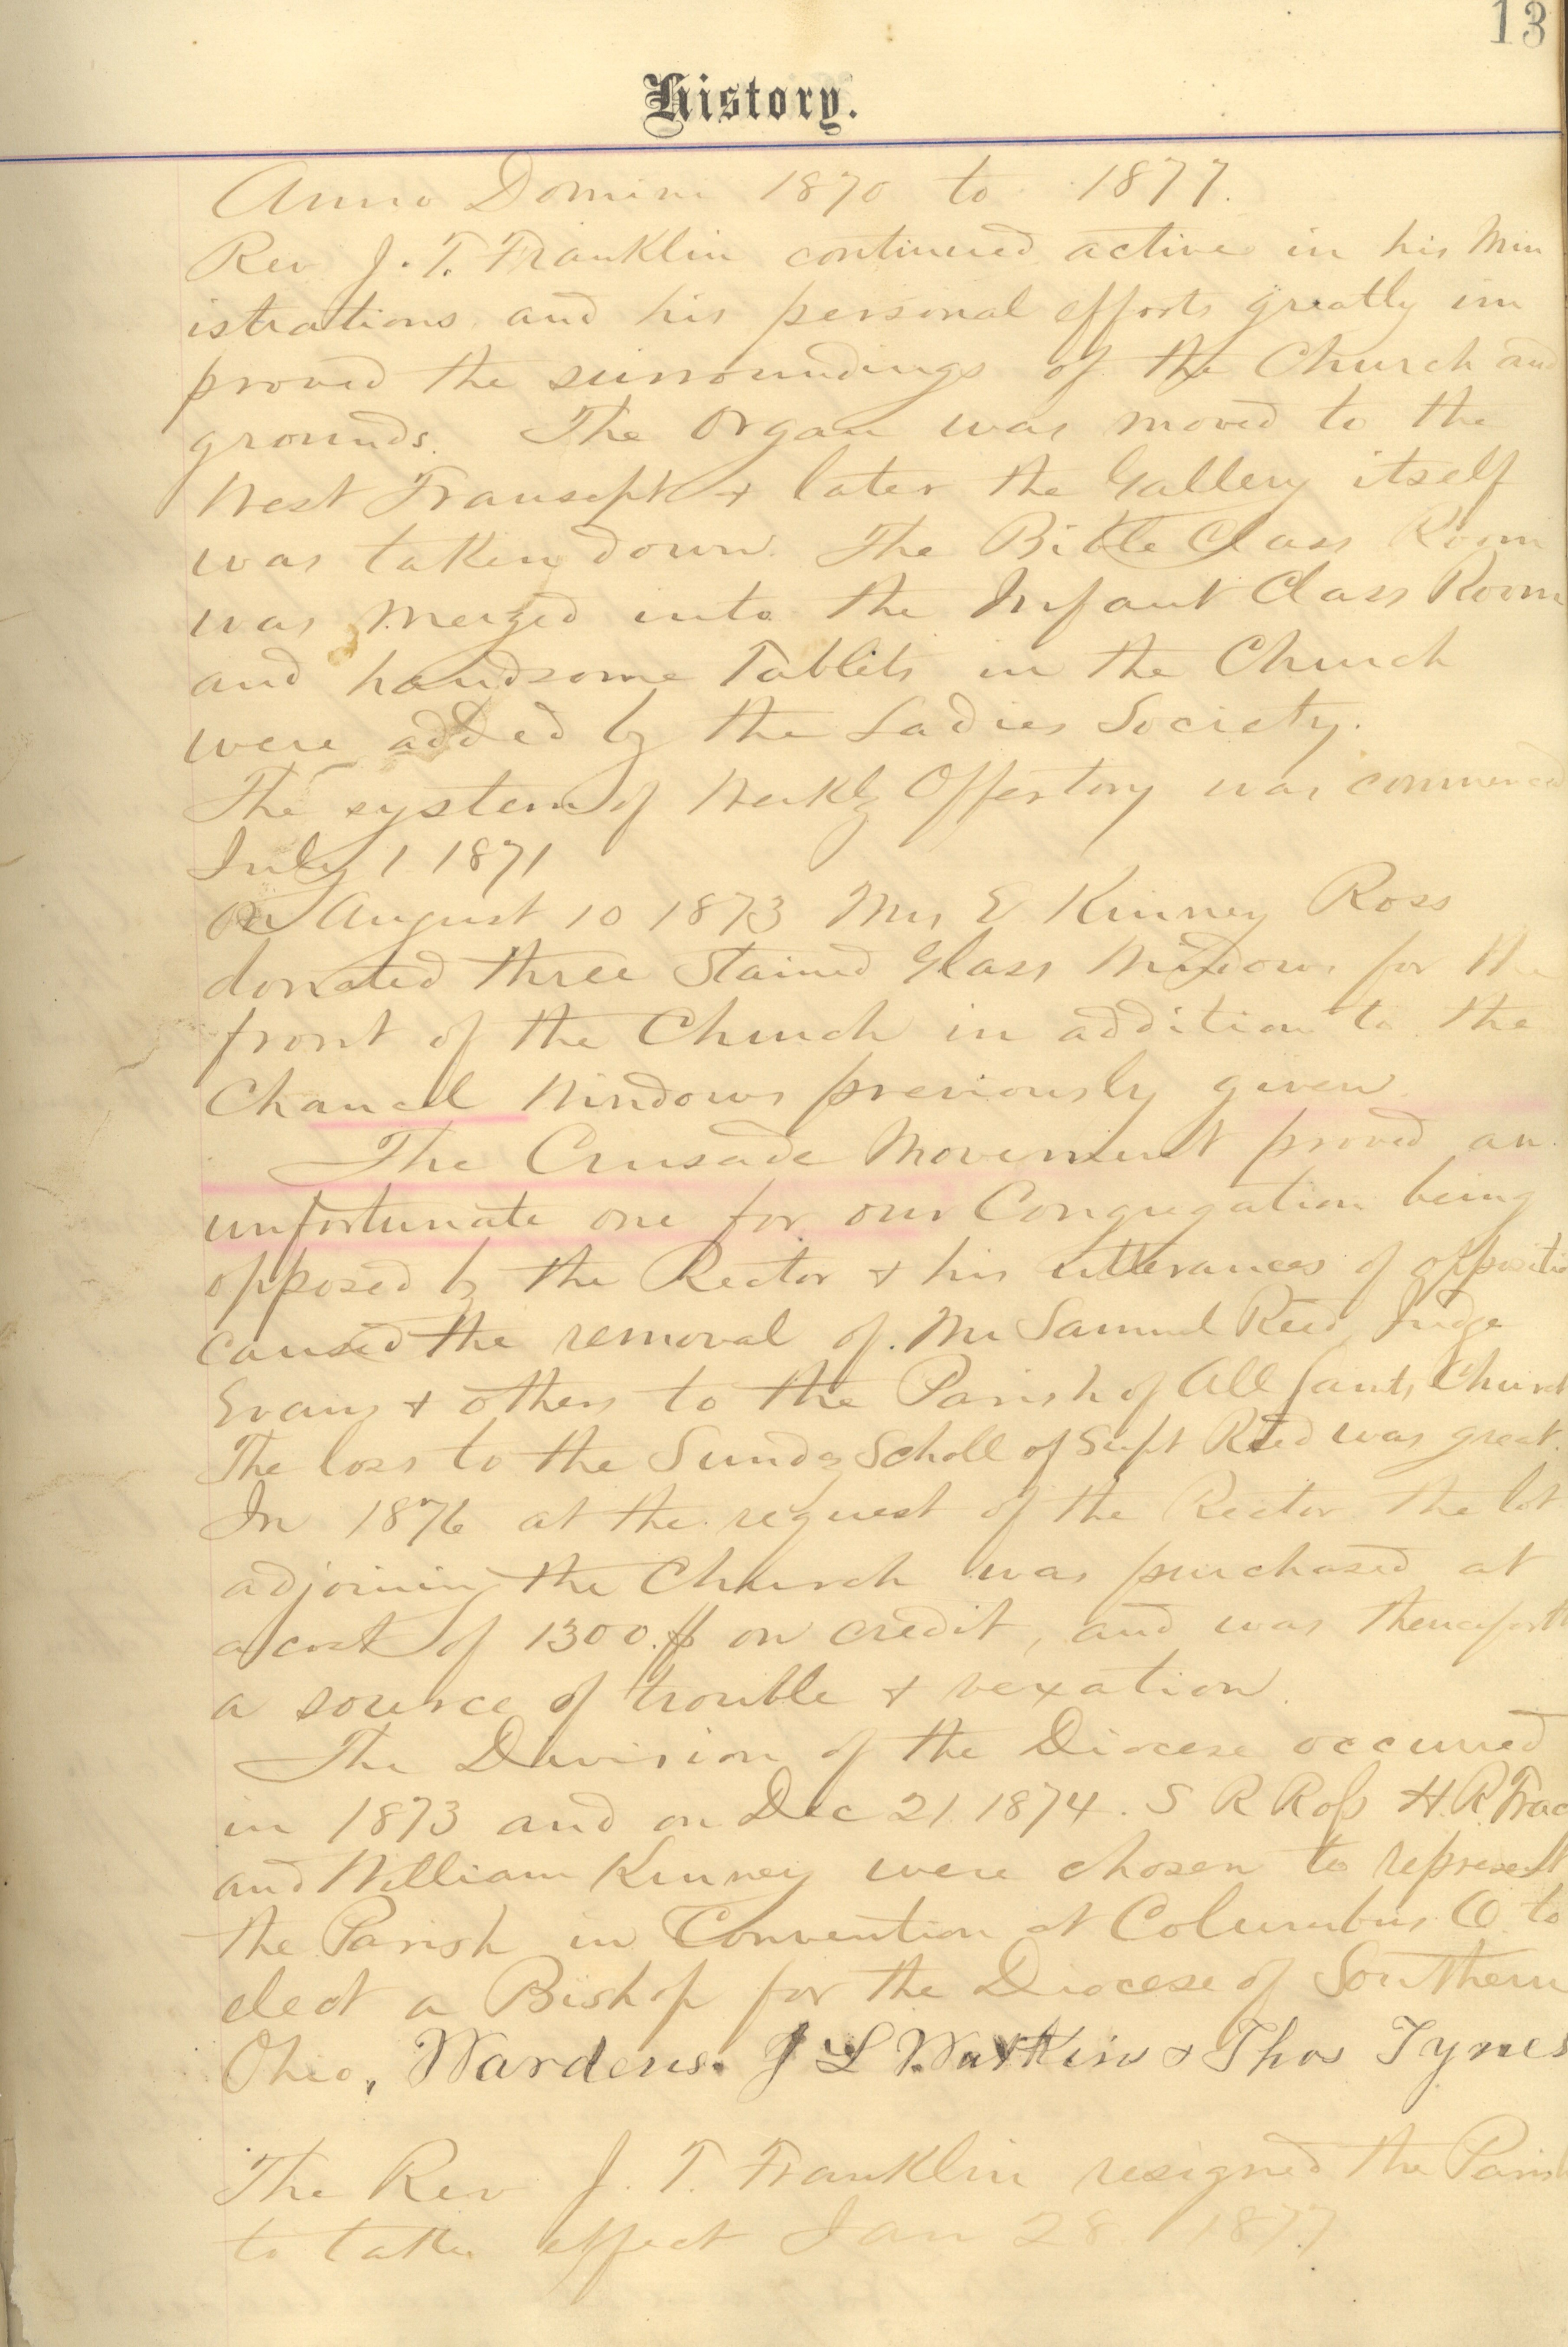 13
History.
Anno Domini 1870 to 1877.
Rev. J. T. Franklin continued active in his Min
istrations and his personal efforts greatly im
proved the surroundings of the Church and
grounds. The Organ was moved to the
West Transept & later the Gallery itself
was taken down. The Bible Class Room
was merged into the Infant Class Room
and handsome Tablets in the Church
were added by the Ladies Society.
The system of Weekly Offertory was commenced
July 1 1871
On August 10 1873 Mrs E Kinney Ross
donated three Stained Glass Windows for the
front of the Church in addition to the
Chancel Windows previously given.
The Crusade Movement proved an
unfortunate one for our Congregation being
opposed by the Rector & his utterances of oppositio
caused the removal of Mr Samuel Reed, Judge
Evans & others to the Parish of All Saints Church
The loss to the Sunday Scholl of Supt Reed was great.
In 1876 at the request of the Rector the lot
adjoining the Church was purchased at
a cost of 1300.$ on credit, and was thenceforth
a source of trouble & vexation.
The Division of the Diocese occurred
in 1873 and on Dec 21 1874. S R Ross H. R. Trac
and William Kinney were chosen to represent
the Parish in Convention at Columbus O. to
elect a Bishop for the Diocese of Southern
Ohio. Wardens. J L Watkins & Thos Tynes
The Rev J. T. Franklin resigned the Parish
to take effect Jan 28 1877